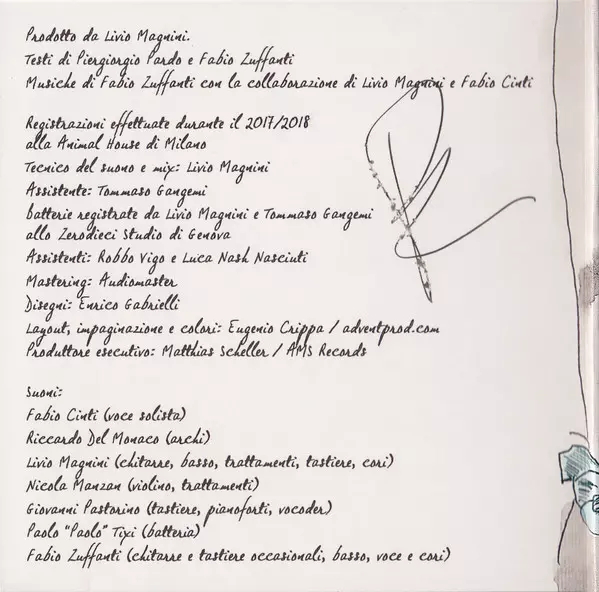 Prodotto da Livio Magnini.
Testi di Piergiorgio Pardo e Fabio Zuffanti
Musiche di Fabio Zuffanti con la collaborazione di Livio Magnini e Fabio Cinti
Registrazioni effettuate durante il 2017/2018
alla Animal House di Milano
Tecnico del suono e mix: Livio Magnini
Assistente: Tommaso Gangemi
batterie registrate da Livio Magnini e Tommaso Gangemi
allo Zerodieci Studio di Genova
Assistenti: Robbo Vigo e Luca Nash Nasciuti
Mastering: Audiomaster
Disegni: Enrico Gabrielli
Layout, impaginazione e colori: Eugenio Crippa / adventprod.com
Produttore esecutivo: Matthias Scheller / AMS Records
Suoni:
Fabio Cinti (voce solista)
Riccardo Del Monaco (archi)
Livio Magnini (chitarre, basso, trattamenti, tastiere, cori)
Nicola Manzan (violino, trattamenti)
Giovanni Pastorino (tastiere, pianoforti, vocoder)
Paolo "Paolo" Tixi (batteria)
Fabio Zuffanti (chitarre e tastiere occasionali, basso, voce e cori)